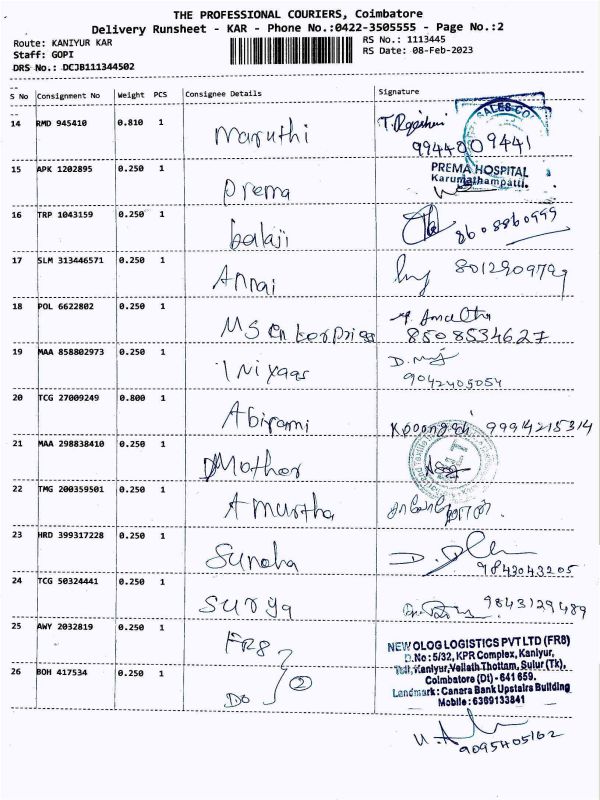 THE PROFESSIONAL COURIERS, Coimbatore
Delivery Runsheet - KAR - Phone No.:0422-3505555 - Page No.:2
Route: KANIYUR KAR
RS No.: 1113445
Staff: GOPI
RS Date: 08-Feb-2023
DRS No.: DCJB111344502
S No Consignment No Weight PCS Consignee Details Signature
14 RMD 945410 0.810 1 Maruthi
9944009441
SALES CO
15 APK 1202895 0.250 1 Prema
PREMA HOSPITAL
Karumathampatti.
16 TRP 1043159 0.250 1 balaji 8608860999
17 SLM 313446571 0.250 1 Annai 8012909799
18 POL 6622802 0.250 1 MS Enterpriss
8508534627
19 MAA 858802973 0.250 1 Inixaas
9042405054
20 TCG 27009249 0.800 1 Abirami 9994215314
21 MAA 298838410 0.250 1 Mother
22 TMG 200359501 0.250 1 Amurtha
23 HRD 399317228 0.250 1 Suneha
9843043205
24 TCG 50324441 0.250 1 Surya 9843129489
25 AWY 2032819 0.250 1 FR8
26 BOH 417534 0.250 1 Do 2
NEW OLOG LOGISTICS PVT LTD (FR8)
D.No : 5/32, KPR Complex, Kaniyur,
Toll, Kaniyur, Vellath Thottam, Sulur (Tk),
Coimbatore (Dt) - 641 659.
Landmark : Canara Bank Upstairs Building
Mobile : 6369133841
9095405162